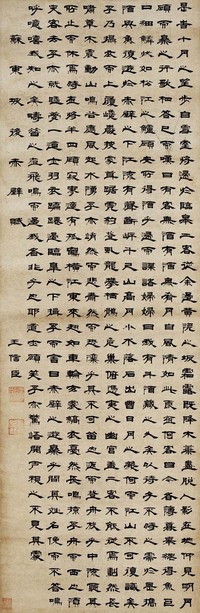 是歲十月之望步自雪堂將歸于臨皋二客從余過黃泥之坂霜露既降木葉盡脫人影在地仰見明月
顧而樂之行歌相答已而嘆曰有客無酒有酒無肴月白風清如此良夜何客曰今者薄暮舉網得魚巨
口細鱗狀如松江之鱸顧安所得酒乎歸而謀諸婦婦曰我有斗酒藏之久矣以待子不時之需於是攜酒與
魚復遊於赤壁之下江流有聲斷岸千尺山高月小水落石出曾日月之幾何而江山不可復識矣
予乃攝衣而上履巉巖披蒙茸踞虎豹登虬龍攀棲鶻之危巢俯馮夷之幽宮蓋二客不能從焉劃然長
嘯草木震動山鳴谷應風起水涌予亦悄然而悲肅然而恐凜乎其不可留也反而登舟放乎中流聽其
所止而休焉時夜將半四顧寂寥適有孤鶴橫江東來翅如車輪玄裳縞衣戛然長鳴掠予舟而西也須
臾客去予亦就睡夢一道士羽衣蹁躚過臨皋之下揖予而言曰赤壁之遊樂乎問其姓名俛而不答嗚
呼噫嘻我知之矣疇昔之夜飛鳴而過我者非子也耶道士顧笑予亦驚寤開戶視之不見其處
蘇東坡後赤壁賦
王信臣